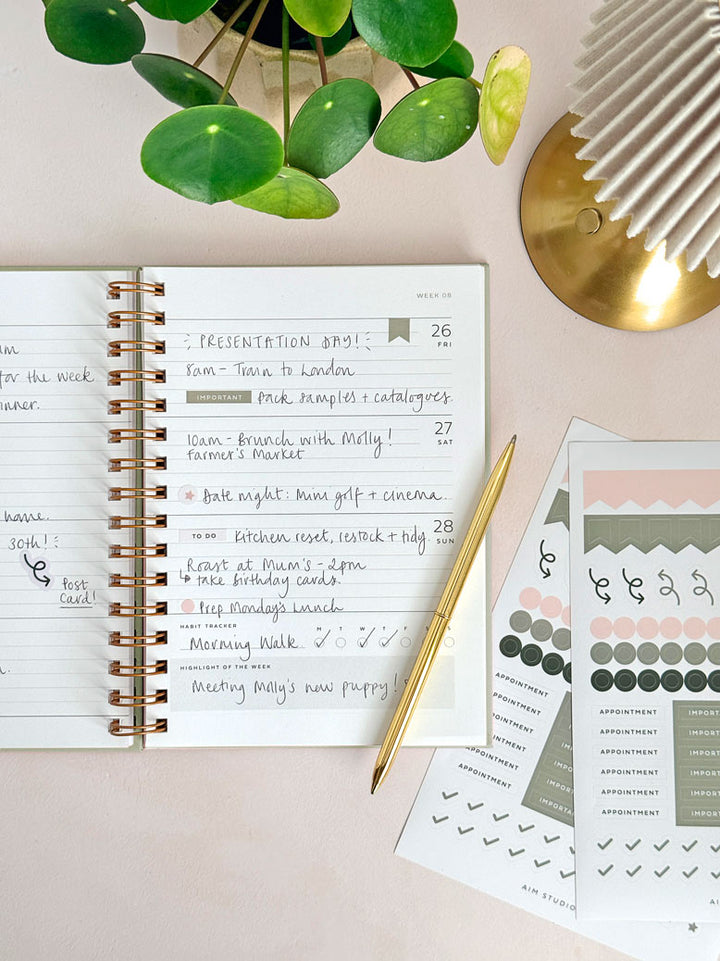 for the week
home.
30th!
Post
Card!
WEEK 08
PRESENTATION DAY!
26
FRI
8am - Train to London
IMPORTANT Pack samples + catalogues.
10am - Brunch with Molly!
27
SAT
Farmer's Market
Date night: Mini golf + cinema.
TO DO Kitchen reset, restock + tidy.
28
SUN
Roast at Mum's - 2pm
take birthday cards.
Prep Monday's Lunch
HABIT TRACKER M T W T F S
Morning Walk
HIGHLIGHT OF THE WEEK
Meeting Molly's new puppy!
APPOINTMENT
APPOINTMENT
APPOINTMENT
APPOINTMENT
APPOINTMENT
APPOINTMENT
IMPORTANT
AIM STUDIO
APPOINTMENT
APPOINTMENT
APPOINTMENT
APPOINTMENT
APPOINTMENT
APPOINTMENT